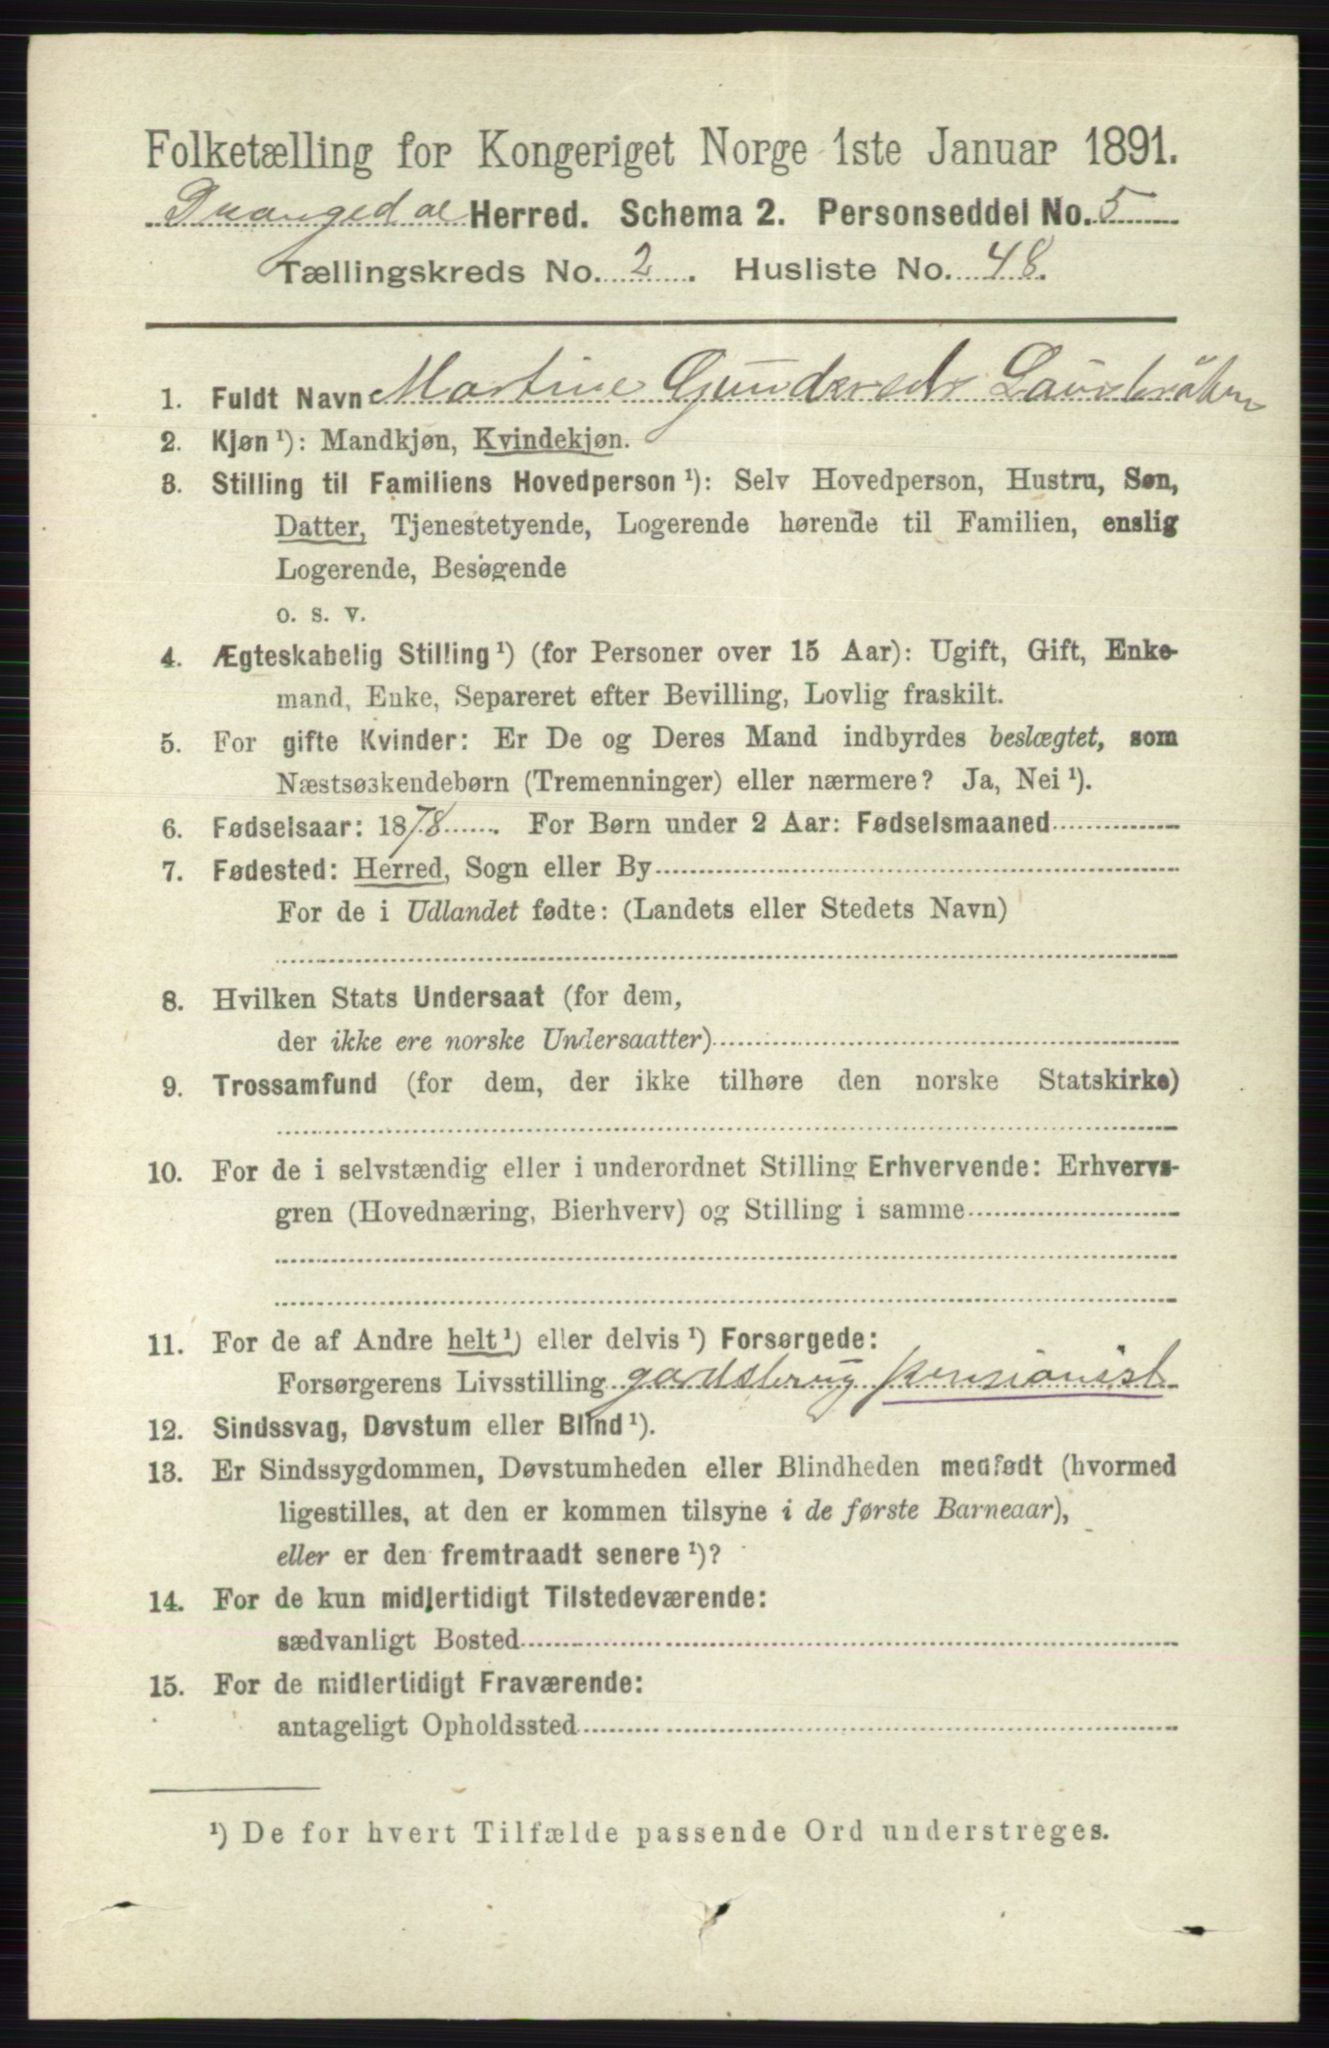 Folketælling for Kongeriget Norge 1ste Januar 1891.
Drangedal Herred. Schema 2. Personseddel No. 5
Tællingskreds No. 2. Husliste No. 48.
1. Fuldt Navn Martine Gundersdr
2. Kjøn ¹): Mandkjøn, Kvindekjøn.
3. Stilling til Familiens Hovedperson ¹): Selv Hovedperson, Hustru, Søn,
Datter, Tjenestetyende, Logerende hørende til Familien, enslig
Logerende, Besøgende
o. s. v.
4. Ægteskabelig Stilling ¹) (for Personer over 15 Aar): Ugift, Gift, Enke-
mand, Enke, Separeret efter Bevilling, Lovlig fraskilt.
5. For gifte Kvinder: Er De og Deres Mand indbyrdes beslægtet, som
Næstsøskendebørn (Tremenninger) eller nærmere? Ja, Nei ¹).
6. Fødselsaar: 1878. For Børn under 2 Aar: Fødselsmaaned
7. Fødested: Herred, Sogn eller By
For de i Udlandet fødte: (Landets eller Stedets Navn)
8. Hvilken Stats Undersaat (for dem,
der ikke ere norske Undersaatter)
9. Trossamfund (for dem, der ikke tilhøre den norske Statskirke)
10. For de i selvstændig eller i underordnet Stilling Erhvervende: Erhvervs-
gren (Hovednæring, Bierhverv) og Stilling i samme
11. For de af Andre helt ¹) eller delvis ¹) Forsørgede:
Forsørgerens Livsstilling gardsbrug pensionist
12. Sindssvag, Døvstum eller Blind ¹).
13. Er Sindssygdommen, Døvstumheden eller Blindheden medfødt (hvormed
ligestilles, at den er kommen tilsyne i de første Barneaar),
eller er den fremtraadt senere ¹)?
14. For de kun midlertidigt Tilstedeværende:
sædvanligt Bosted
15. For de midlertidigt Fraværende:
antageligt Opholdssted
¹) De for hvert Tilfælde passende Ord understreges.